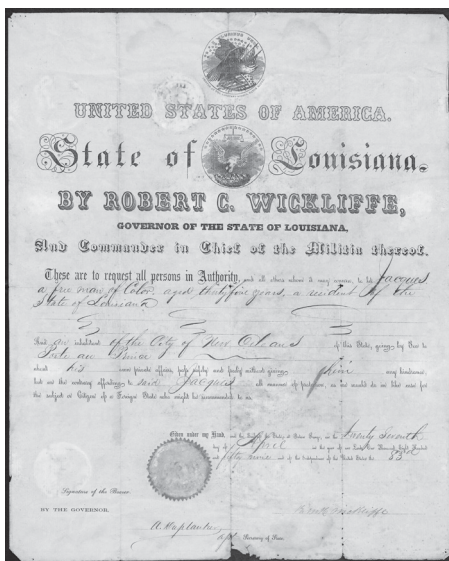 UNITED STATES OF AMERICA.
State of Louisiana.
BY ROBERT C. WICKLIFFE,
GOVERNOR OF THE STATE OF LOUISIANA,
And Commander in Chief of the Militia thereof.
These are to request all persons in Authority, and all others whom it may concern, to let Jacques
a free man of Color, aged thirty five years, a resident of the
State of Louisiana
an inhabitant of the City of New Orleans of this State, going by Sea to
Port au Prince
about his own private affairs, pass safely and freely without giving him any hindrance,
but on the contrary affording to said Jacques all manner of protection, as we would do in like case for
the subject or Citizen of a Foreign State who might be recommended to us.
Given under my Hand, and the Seal of the State, at Baton Rouge, on the twenty seventh
day of April in the year of our Lord, One Thousand Eight Hundred
and fifty nine and of the Independence of the United States the 83rd
Signature of the Bearer.
BY THE GOVERNOR.
Secretary of State.